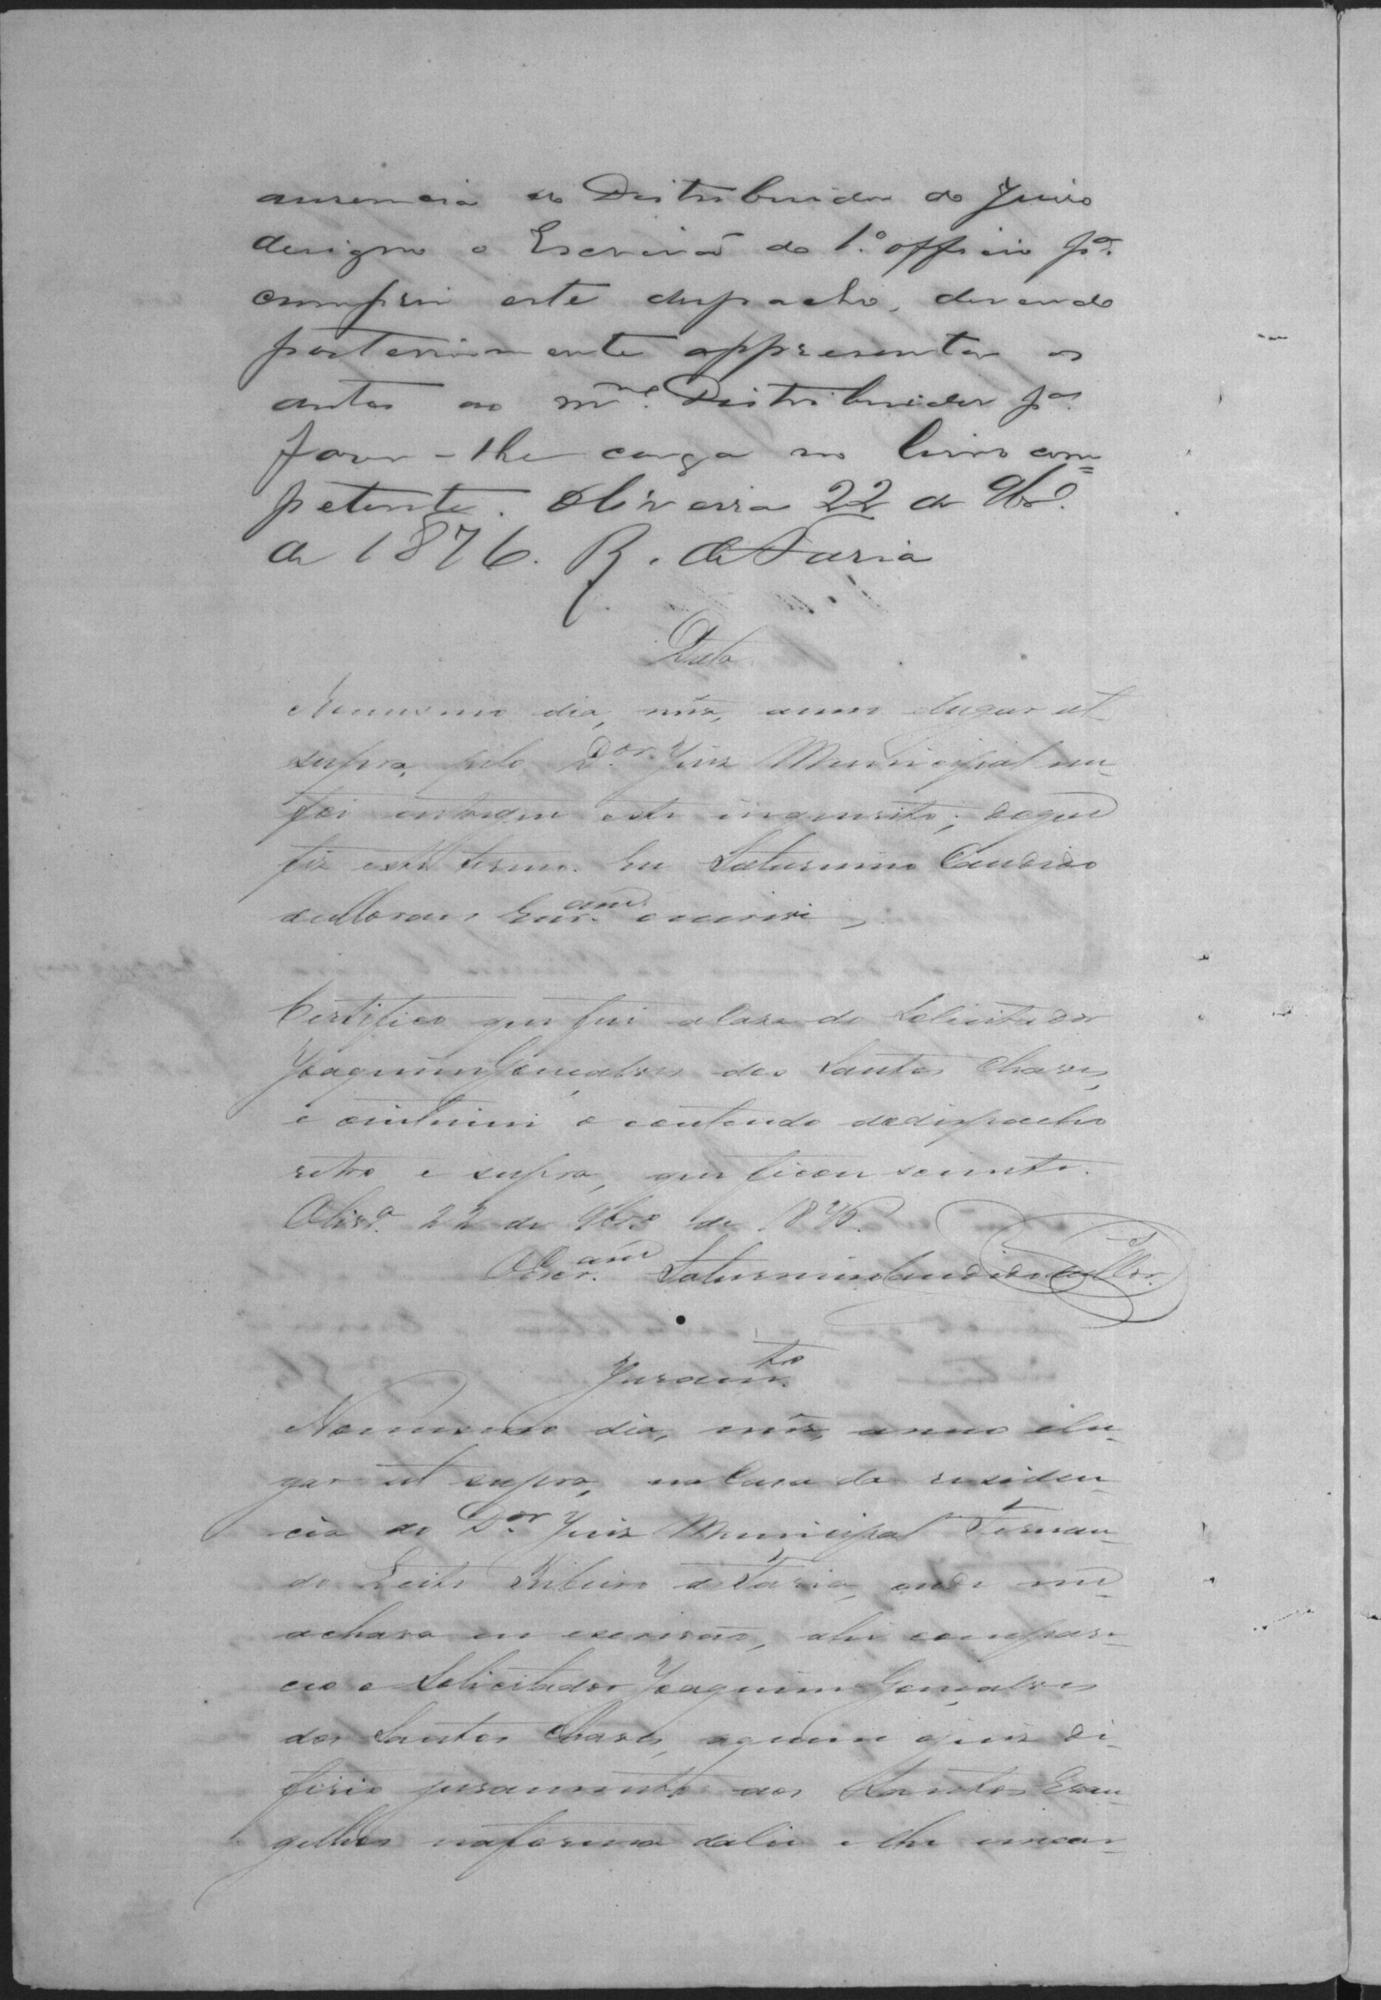 ausencia do Distribuidor do Juizo
designo o Escrivão do 1.º officio p.ª
cumprir este despacho, devendo
posteriormente appresentar os
autos ao m.mo Distribuidor p.ª
fazer-lhe carga no livro com=
petente. Oliveira 22 de 9br.º
de 1876. R. de Faria
Data
No mesmo dia, mês, anno e lugar ut
supra, pelo D.or Juiz Municipal me
foi entregue este inquerito; do que
fiz este termo. Eu Saturnino Candido
de Moraes Escr.am o escrivi,
Certifico que fui a Casa do Solicitador
Joaquim Gonçalves dos Santos Chaves,
e o intimei o contendo do despacho
retro e supra, que ficou sciente.
Olivr.ª 22 de 9br.º de 1876.
O Escr.am Saturnino Candido de Mor.
Juram.to
No mesmo dia, mês, anno e lu-
gar ut supra, na Casa da residen-
cia do D.or Juiz Municipal Fernan-
do Leite Ribeiro de Faria, onde me
achava eu escrivão, ahi compare-
ceo o Solicitador Joaquim Gonçalves
dos Santos Chaves, a quem o juiz de-
ferio juramento aos Santos Evan-
gelhos na forma da lei e lhe encar-